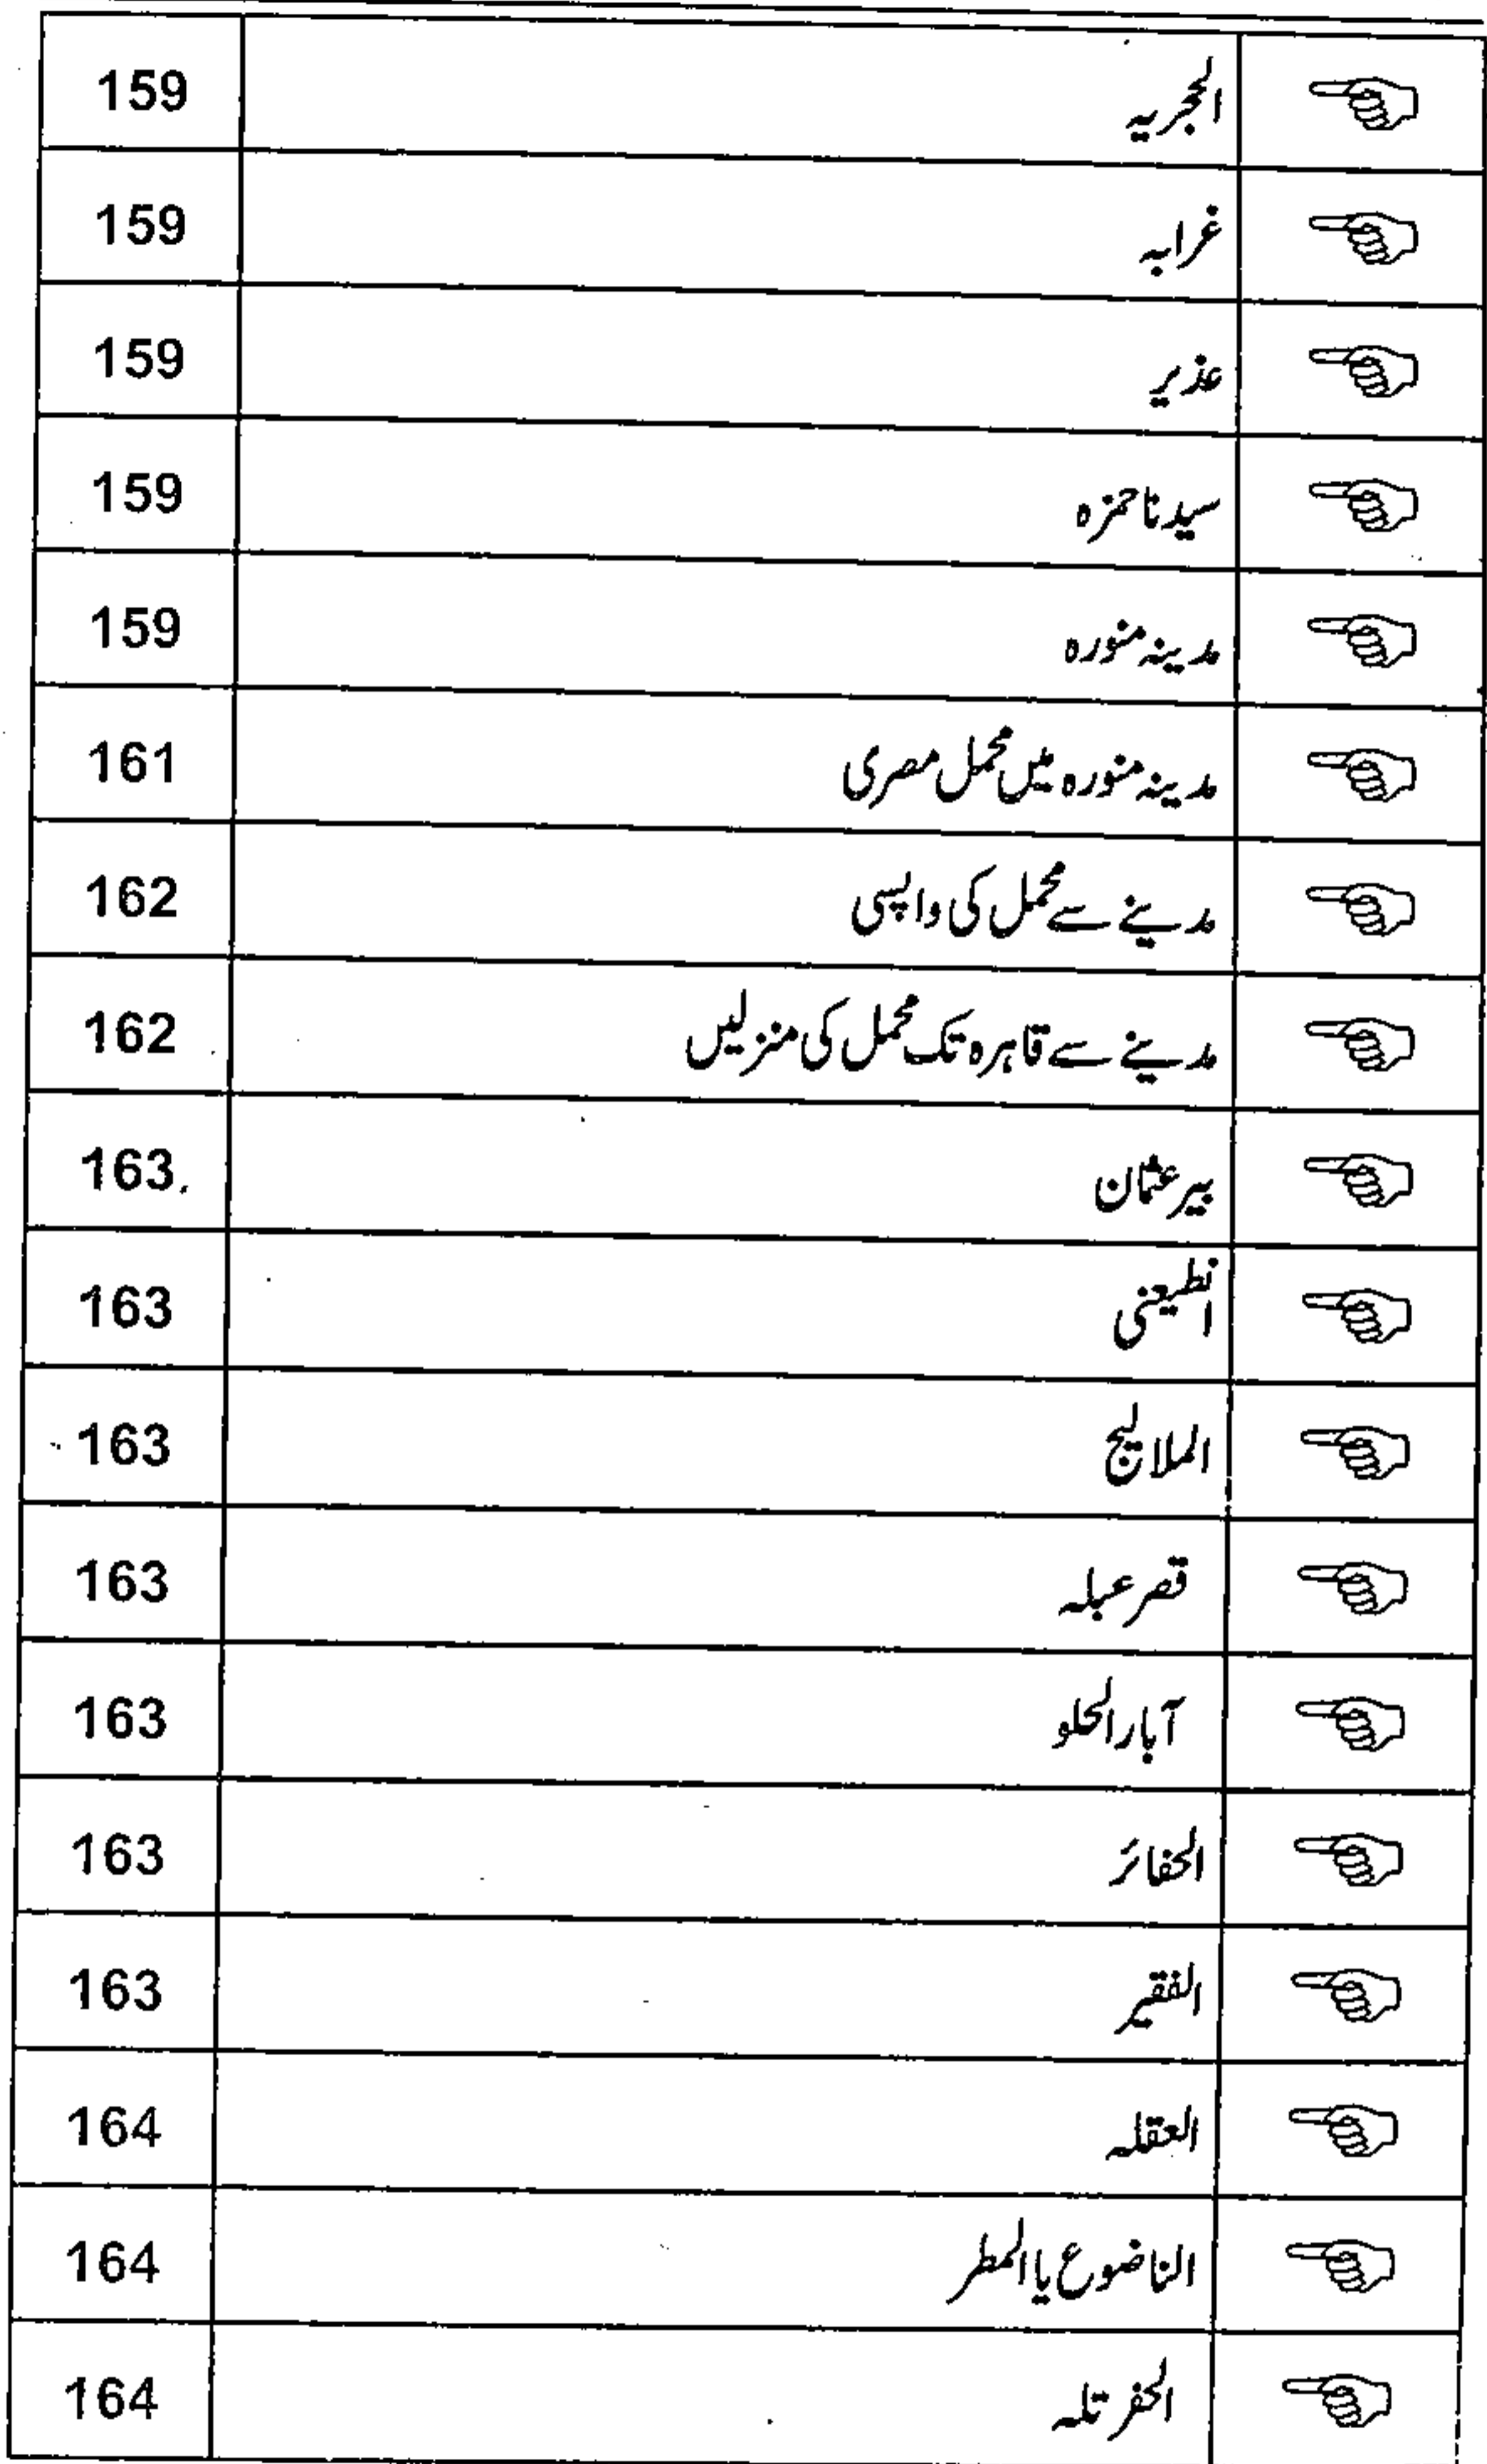 الحجریہ 159
غرابہ 159
عذیر 159
سیدنا حمزہ 159
مدینہ منورہ 159
مدینہ منورہ میں محمل مصری 161
مدینے سے محمل کی واپسی 162
مدینے سے قاہرہ تک محمل کی منزلیں 162
بیر عثمان 163
163
الملالیح 163
قصر عبلہ 163
آبار الحلو 163
الحفائر 163
الفقیر 163
العقلہ 164
الناضوع یا المطر 164
الحفر تلہ 164